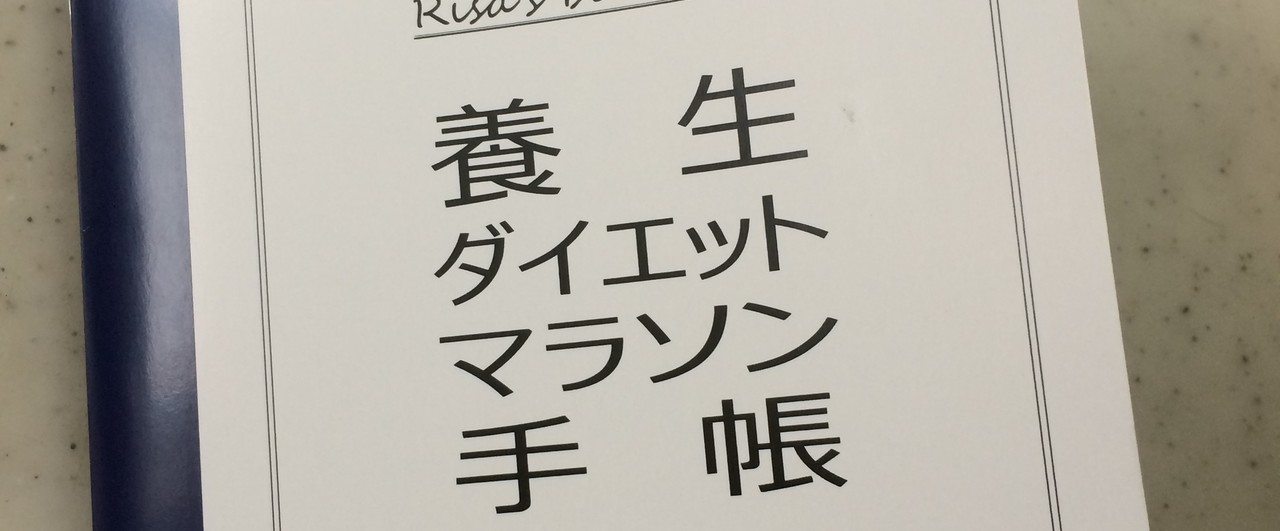 Risa's
養 生
ダイエット
マラソン
手 帳